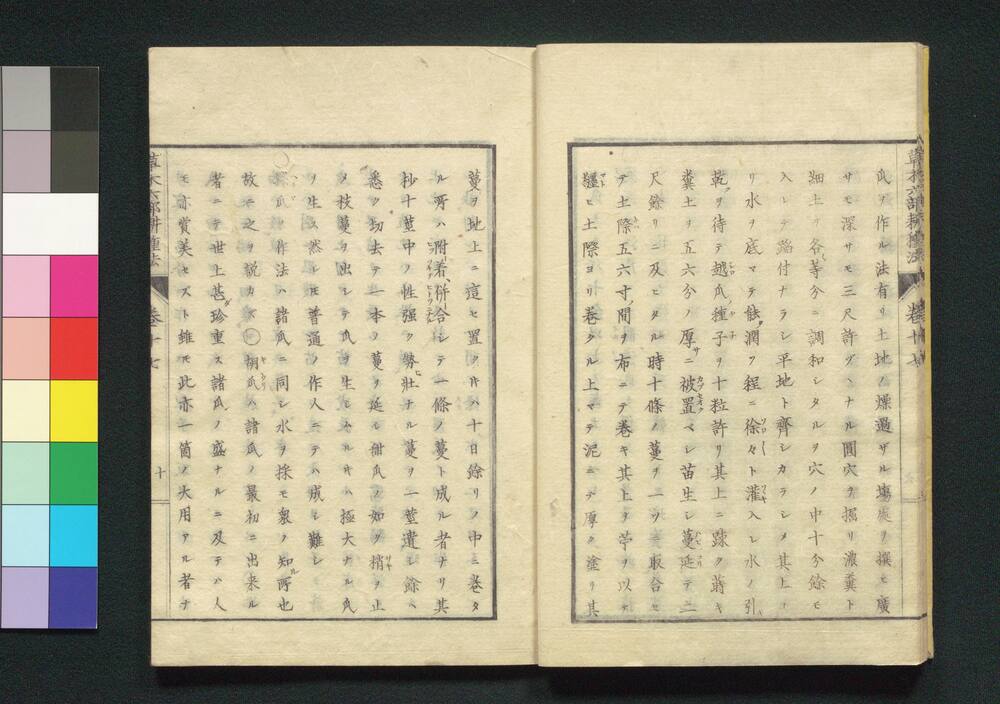 瓜ヲ作ル法有リ土地ノ燥過ザル塲處ヲ撰ビ廣
サモ深サモ三尺許ヅヽナル圓穴ヲ掘リ濃糞ト
細土ヲ各等分ニ調和シタルヲ穴ノ中十分餘モ
入レテ踏付ナラシ平地ト齊シカラシメ其上ヨ
リ水ヲ底マテ融潤フ程ニ徐々ト灌入レ水ノ引
乾ヲ待テ越瓜ノ種子ヲ十粒許リ其上ニ踈ク蒔キ
糞土ヲ五六分ノ厚サニ被置ベシ苗生シ蔓延テ二
尺餘リニ及ビタル時十條ノ蔓ヲ一ツニ取合セ
テ土際五六寸ノ間ヲ布ニテ巻キ其上ヲ苧ヲ以テ
纏ヒ土際ヨリ巻タル上マデ泥ニテ厚ク塗リ其
草木六部耕種法 卷十七
蔓ヲ地上ニ這セ置クキハ十日餘リノ中ニ巻タ
ル所ハ附着併合シテ一條ノ蔓ト成ル者ナリ其
杪十莖中ノ性强ク勢壯ナル蔓ヲ一莖遺シ餘ハ
悉ク切去テ一本ノ蔓ヲ延シ甜瓜ノ如ク梢ヲ止
メ枝蔓ヲ出シテ瓜ヲ生シムルキハ極大ナル瓜
ノ生ス然レモ普通ノ作人ニテハ成シ難シ
瓜ノ作法ハ諸瓜ニ同シ水ヲ採モ衆ノ知所也
故ニ之ヲ説カズ○胡瓜ハ諸瓜ノ最初ニ出来ル
者ニテ世上甚ダ珍重ス諸瓜ノ盛ナルニ及テハ人
モ亦賞美セズト雖モ此亦一箇ノ大用アル者ナ
草木六部耕種法 卷十七 十